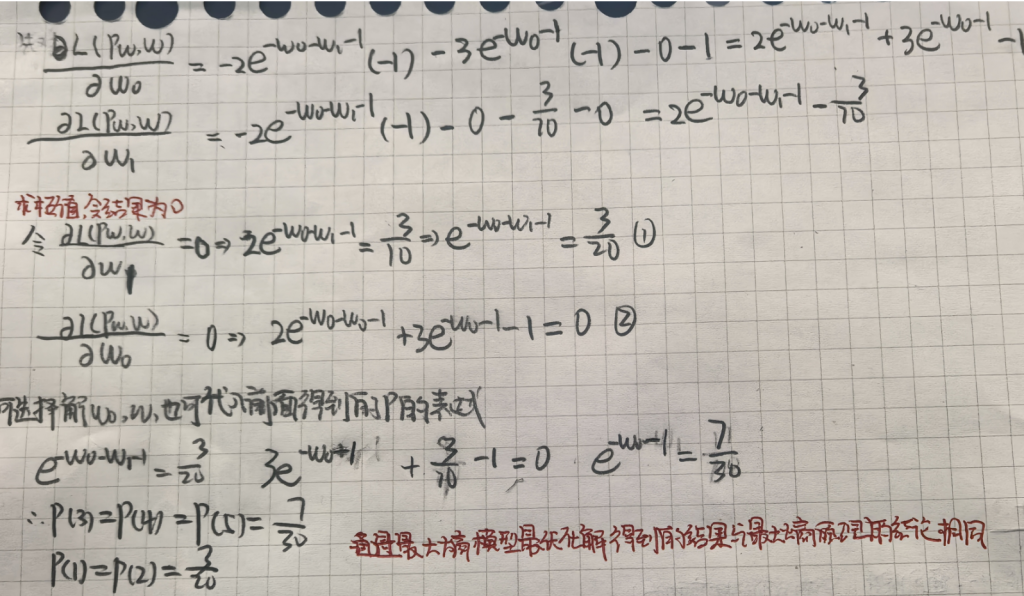 ∂L(Pw,w)/∂w₀ = -2e^{-w₀-w₁-1}(-1) - 3e^{-w₀-1}(-1) - 0 - 1 = 2e^{-w₀-w₁-1} + 3e^{-w₀-1} - 1
∂L(Pw,w)/∂w₁ = -2e^{-w₀-w₁-1}(-1) - 0 - 3/10 - 0 = 2e^{-w₀-w₁-1} - 3/10
求极值,令结果为0
令 ∂L(Pw,w)/∂w₁ = 0 ⇒ 2e^{-w₀-w₁-1} = 3/10 ⇒ e^{-w₀-w₁-1} = 3/20 ①
∂L(Pw,w)/∂w₀ = 0 ⇒ 2e^{-w₀-w₀-1} + 3e^{-w₀-1} - 1 = 0 ②
可选择解w₀,w₁也可代入前面得到的P的表达式
e^{-w₀-w₁-1} = 3/20 3e^{-w₀+1} + 3/10 - 1 = 0 e^{-w₀-1} = 7/30
∴ P(3)=P(4)=P(5)= 7/30
P(1)=P(2)= 3/20
通过最大熵模型最优化解得到的结果与最大熵原理得结论相同